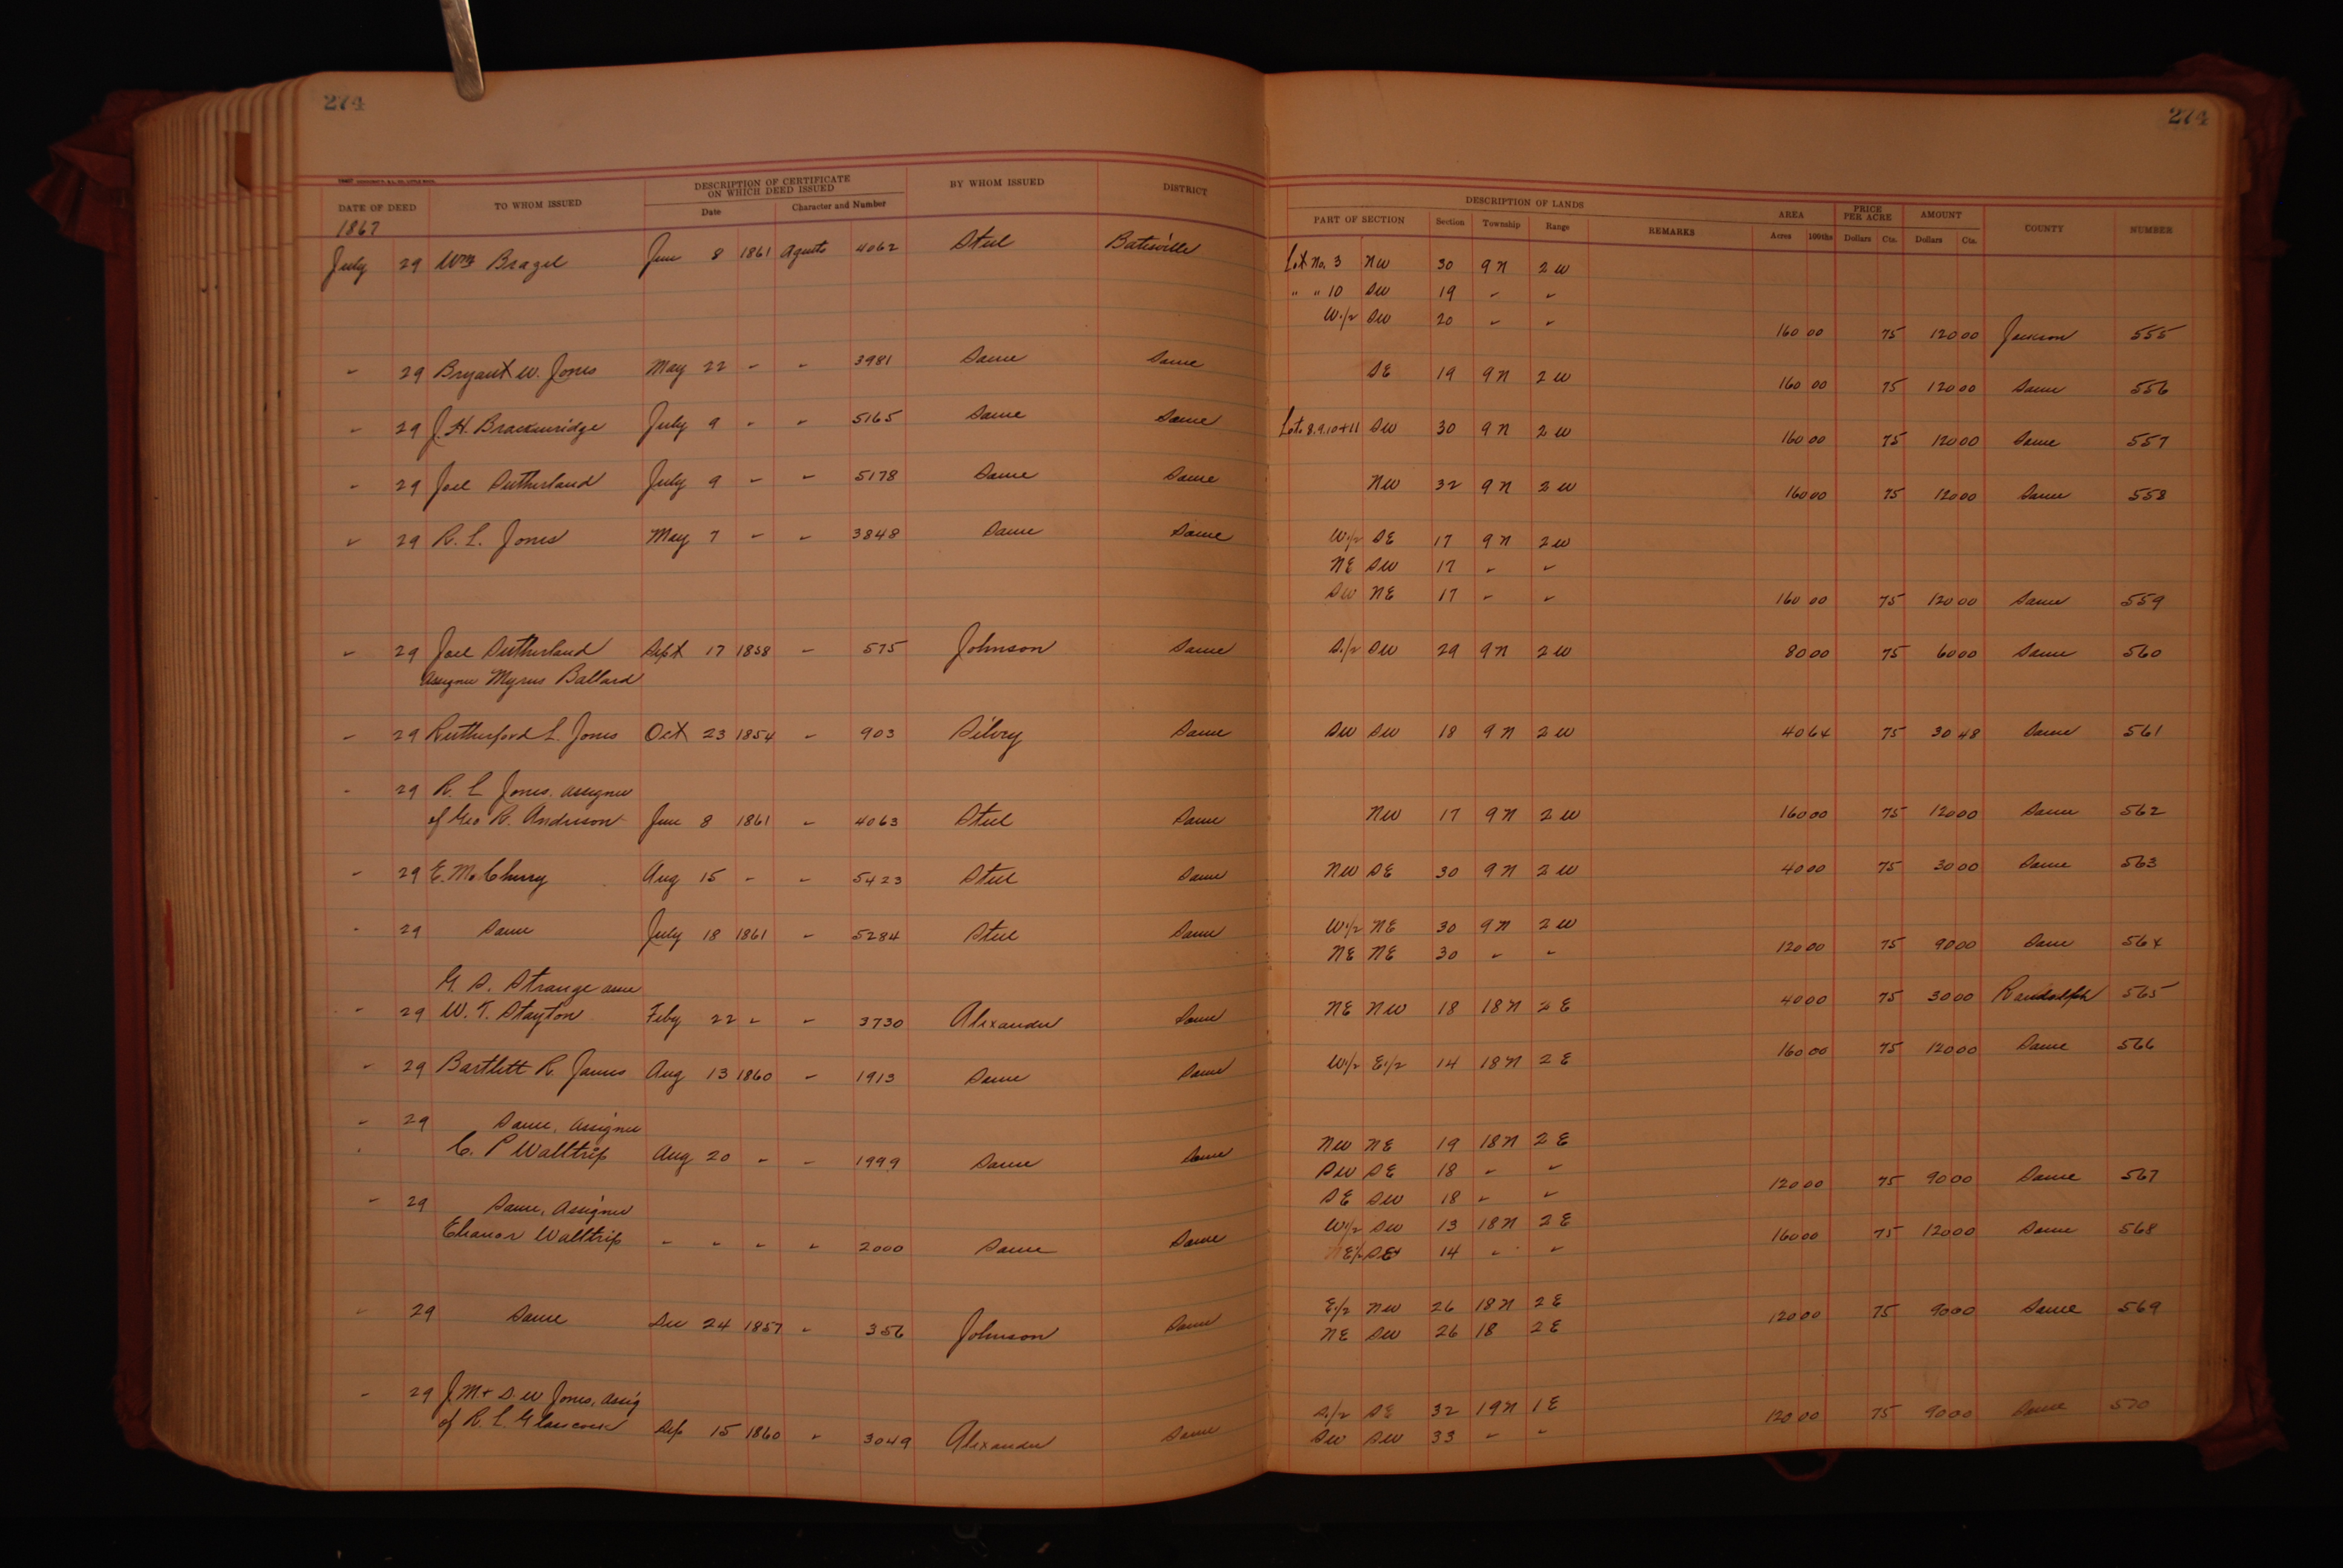 274
274
DESCRIPTION OF CERTIFICATE ON WHICH DEED ISSUED
BY WHOM ISSUED
DISTRICT
DATE OF DEED
TO WHOM ISSUED
Date
Character and Number
DESCRIPTION OF LANDS
AREA
PRICE PER ACRE
AMOUNT
PART OF SECTION
Section
Township
Range
REMARKS
Acres
100ths
Dollars
Cts.
Dollars
Cts.
COUNTY
NUMBER
1867
July 29 Wm Brazil June 8 1861 Agents 4062 Steel Batesville Lot No. 3 NW 30 9N 2W
" " 10 SW 19 " "
W1/2 SW 20 " " 160 00 75 120 00 Jackson 555
" 29 Bryant W. Jones May 22 " " 3981 Same Same SE 19 9N 2W 160 00 75 120 00 Same 556
" 29 J. H. Brackenridge July 9 " " 5165 Same Same Lots 8.9.10+11 SW 30 9N 2W 160 00 75 120 00 Same 557
" 29 Joel Sutherland July 9 " " 5178 Same Same NW 32 9N 2W 160 00 75 120 00 Same 558
" 29 R. L. Jones May 7 " " 3848 Same Same W1/2 SE 17 9N 2W
NE SW 17 " "
SW NE 17 " " 160 00 75 120 00 Same 559
" 29 Joel Sutherland Sept 17 1858 " 575 Johnson Same S1/2 SW 29 9N 2W 80 00 75 60 00 Same 560
Assignee Myrus Ballard
" 29 Rutherford L. Jones Oct 23 1854 " 903 Same SW SW 18 9N 2W 40 64 75 30 48 Same 561
" 29 R. L Jones, assignee
of Geo R. Anderson June 8 1861 " 4063 Steel Same NW 17 9N 2W 160 00 75 120 00 Same 562
" 29 E. M. Cherry Aug 15 " " 5423 Steel Same NW SE 30 9N 2W 40 00 75 30 00 Same 563
" 29 Same July 18 1861 " 5284 Steel Same W1/2 NE 30 9N 2W
NE NE 30 " " 120 00 75 90 00 Same 564
G. S. Strange assee
" 29 W. T. Stayton Feby 22 " " 3730 Alexander Same NE NW 18 18N 2E 40 00 75 30 00 Randolph 565
" 29 Bartlett R. James Aug 13 1860 " 1913 Same Same W1/2 E1/2 14 18N 2E 160 00 75 120 00 Same 566
" 29 Same, Assignee
" C. P Walltrip Aug 20 " " 1999 Same Same NW NE 19 18N 2E
SW SE 18 " "
SE SW 18 " " 120 00 75 90 00 Same 567
" 29 Same, Assignee
Eleanor Walltrip " " " " 2000 Same Same W1/2 SW 13 18N 2E 160 00 75 120 00 Same 568
E1/2 SE 14 " "
" 29 Same Dec 24 1857 " 356 Johnson Same E1/2 NW 26 18N 2E 120 00 75 90 00 Same 569
NE SW 26 18 2E
" 29 J. M + S. W Jones, assig
of R. L. Glasscock Sep 15 1860 " 3049 Alexander Same S1/2 SE 32 19N 1E 120 00 75 90 00 Same 570
SW SW 33 " "